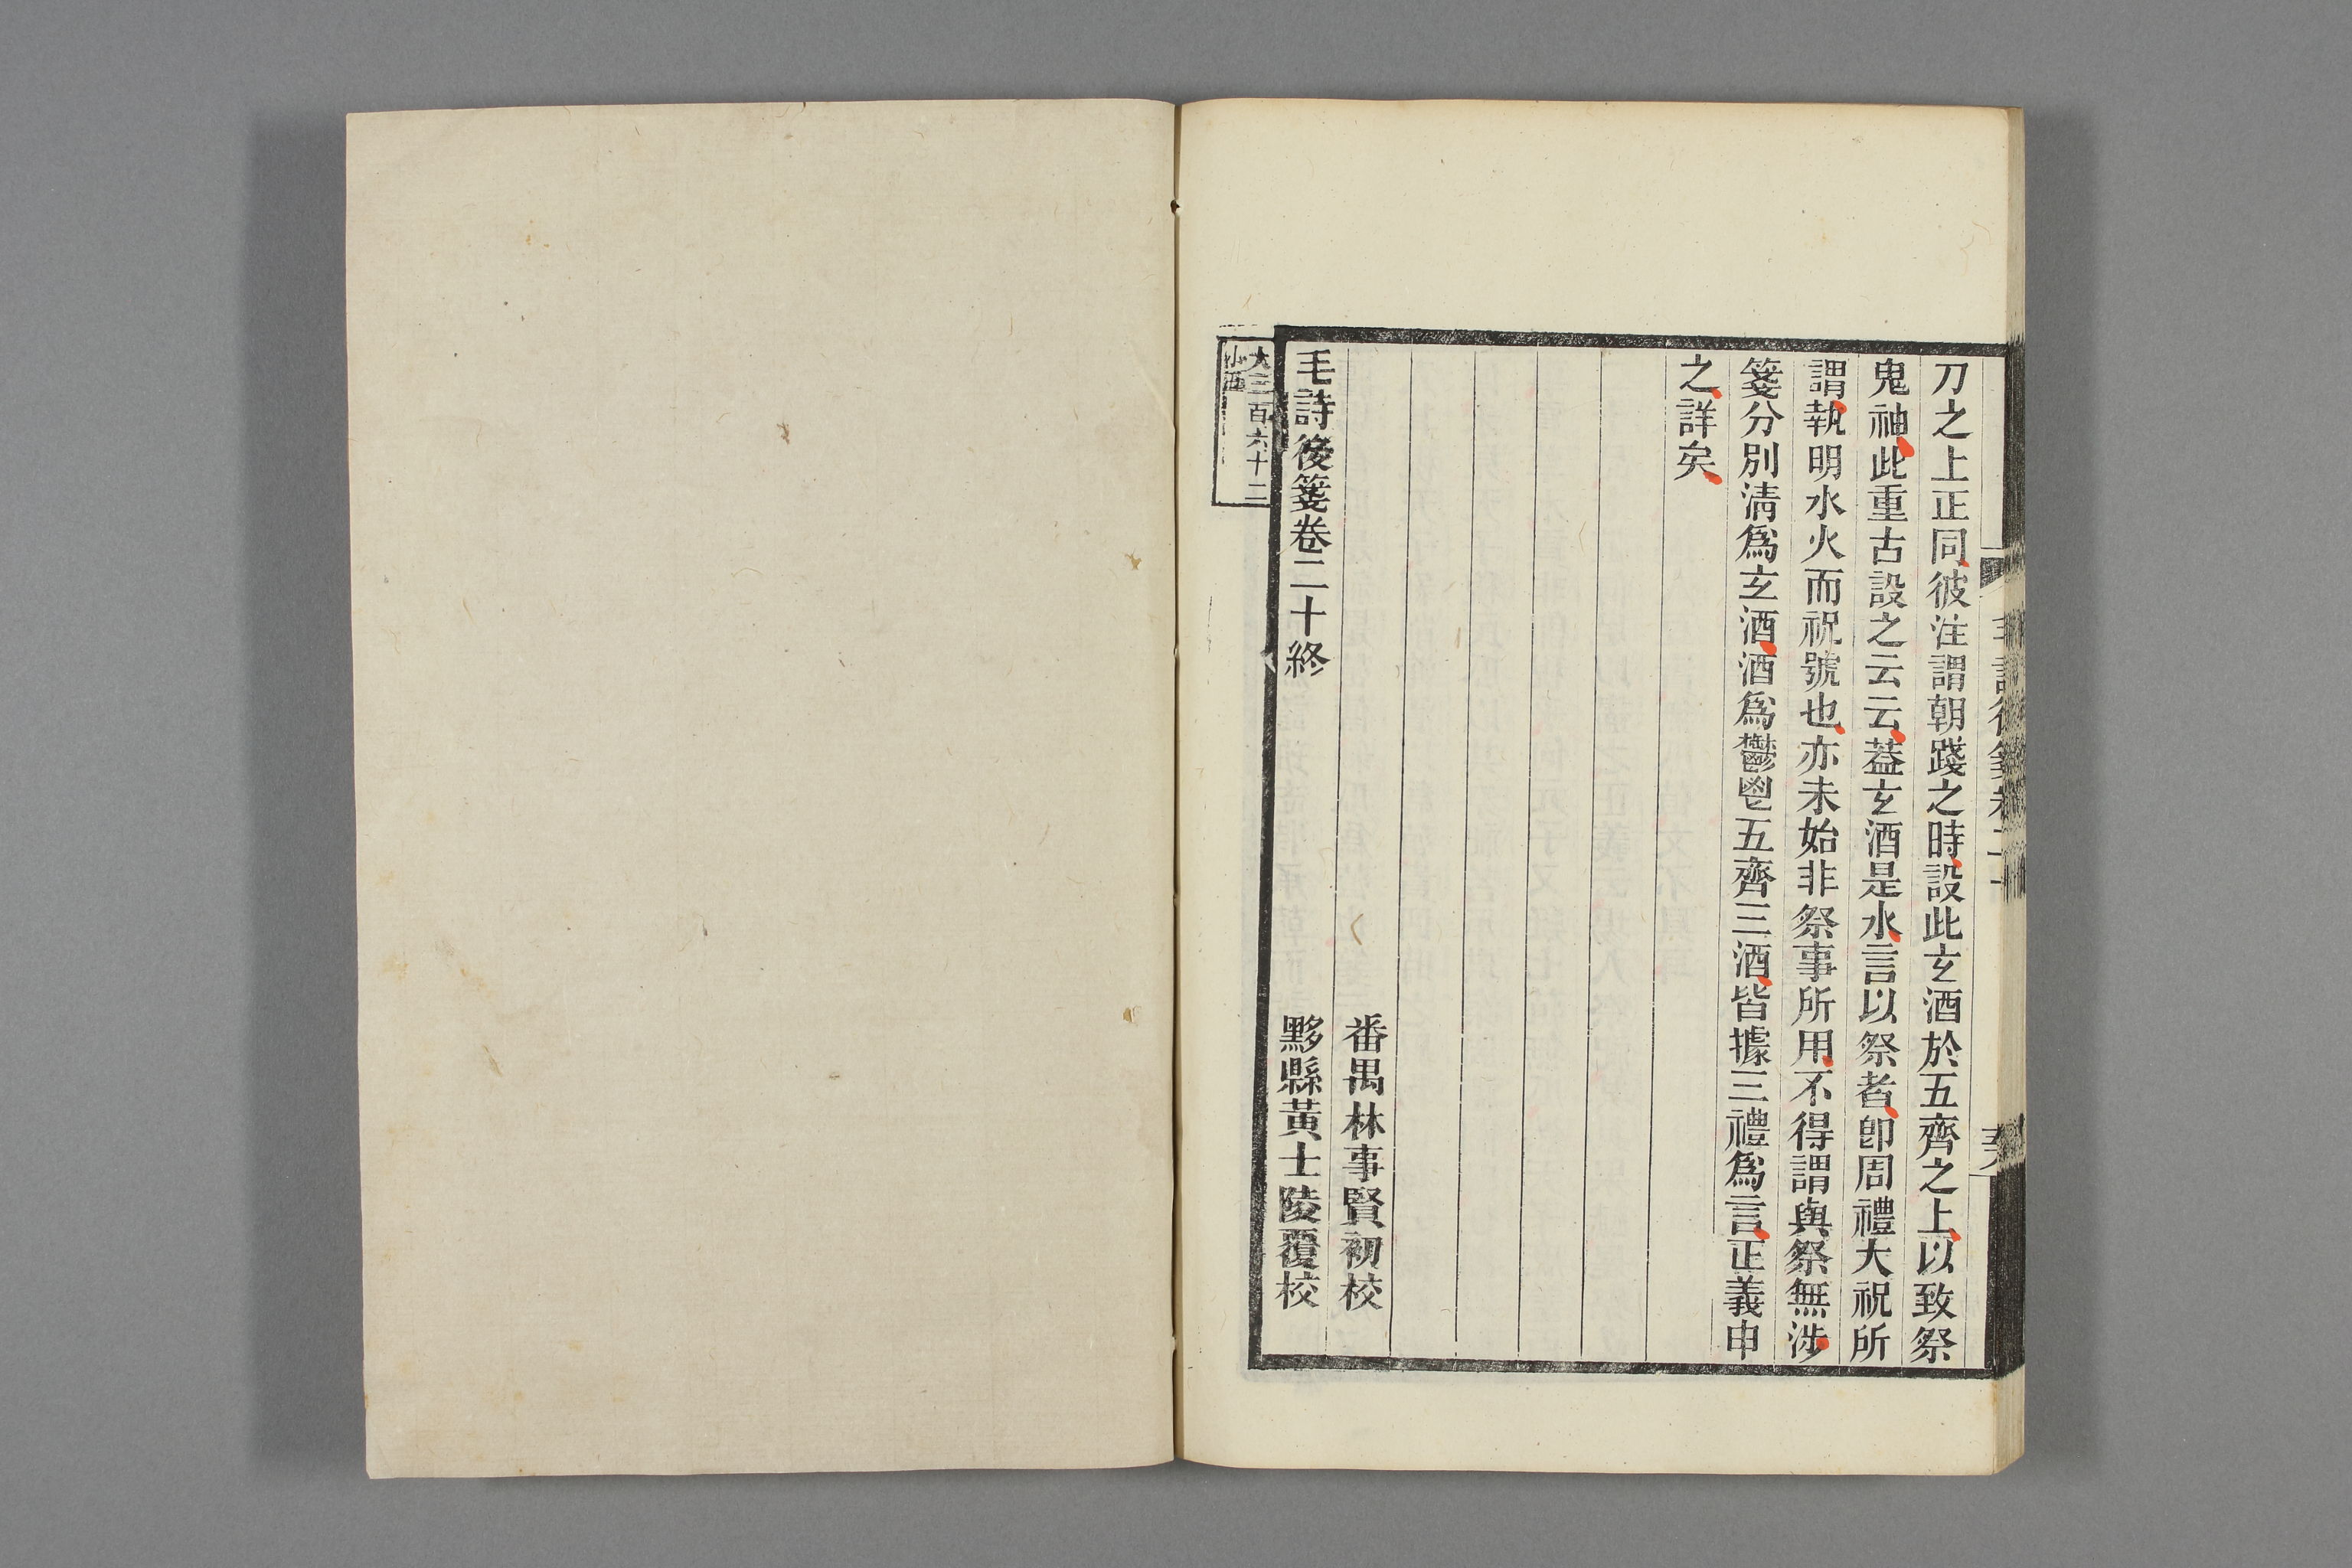 刀之上正同彼注謂朝踐之時設此玄酒於五齊之上以致祭
鬼神此重古設之云云葢玄酒是水言以祭者卽周禮大祝所
謂執明水火而祝號也亦未始非祭事所用不得謂與祭無涉
箋分別淸爲玄酒酒爲鬱鬯五齊三酒皆據三禮爲言正義申
之詳矣
番禺林事賢初校
毛詩後箋卷二十終
黟縣黃士陵覆校
大三百六十二